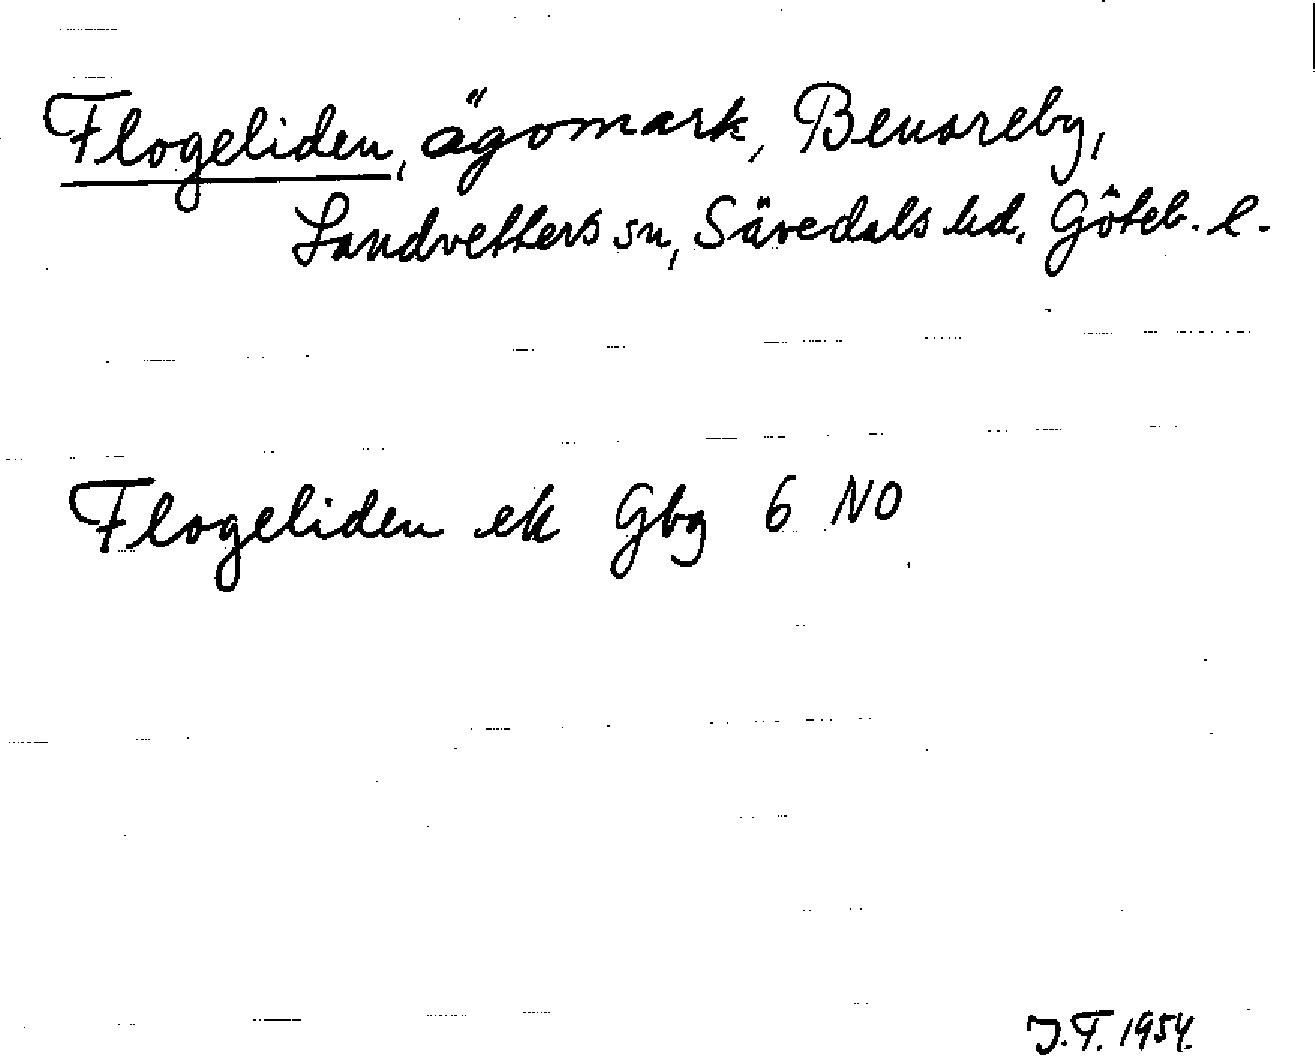 Flogeliden, ägomark, Benareby,
Landvetters sn, Sävedals hd. Göteb. l.
Flogeliden ek Gbg 6 NO
J.F. 1954.